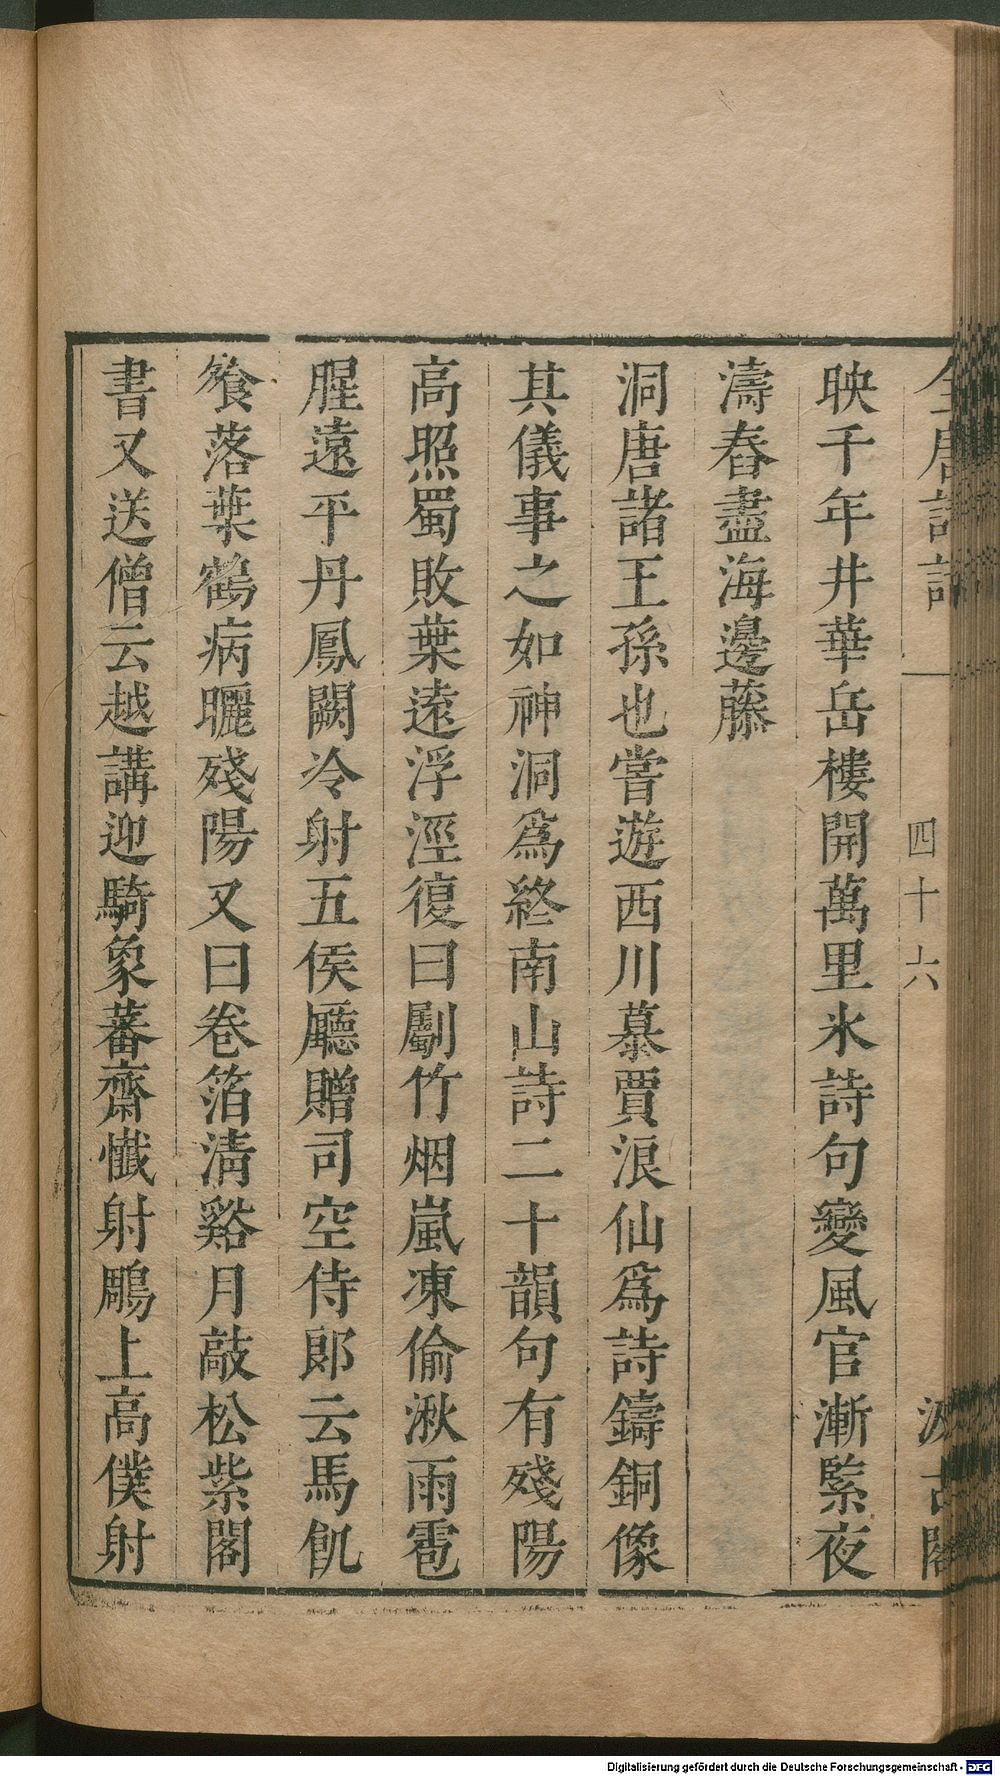 全唐詩話 一 四十六 汲古閣
映千年井華岳樓開萬里氷詩句變風官漸緊夜
濤舂盡海邊藤
洞唐諸王孫也嘗遊西川慕賈浪仙爲詩鑄銅像
其儀事之如神洞爲終南山詩二十韻句有殘陽
高照蜀敗葉遠浮涇復曰劚竹烟嵐凍偷湫雨雹
腥遠平丹鳳闕冷射五侯廳贈司空侍郎云馬飢
飱落葉鶴病曬殘陽又曰卷箔清谿月敲松紫閣
書又送僧云越講迎騎象蕃齋懺射鵰上高僕射
Digitalisierung gefördert durch die Deutsche Forschungsgemeinschaft - DFG